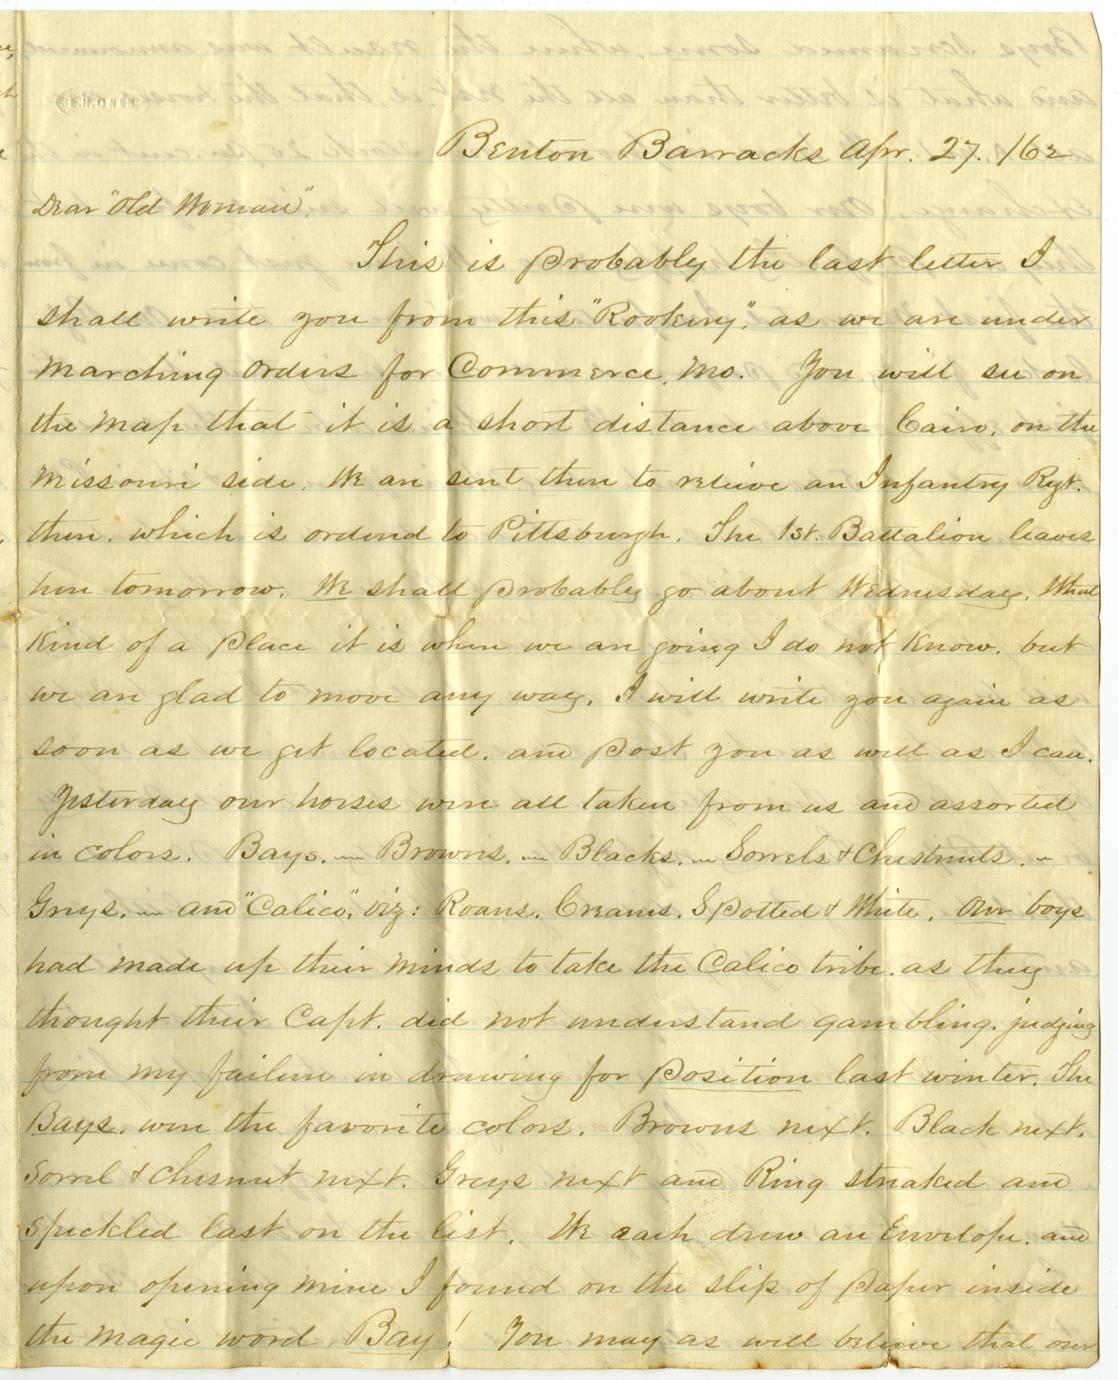 Benton Barracks Apr. 27. /62
Dear "Old Woman",
This is probably the last letter I
shall write you from this "Rookery", as we are under
marching orders for Commerce, Mo. You will see on
the map that it is a short distance above Cairo, on the
Missouri side. We are sent there to relieve an Infantry Regt.
there, which is ordered to Pittsburgh. The 1st. Battalion leaves
here tomorrow. We shall probably go about Wednesday. What
kind of a place it is where we are going I do not know, but
we are glad to move any way. I will write you again as
soon as we get located, and post you as well as I can.
Yesterday our horses were all taken from us and assorted
in colors. Bays. — Browns. — Blacks. — Sorrels & Chestnuts. —
Greys. — and "Calico", viz: Roans. Creams. Spotted & White. Our boys
had made up their minds to take the Calico tribe, as they
thought their Capt. did not understand gambling, judging
from my failure in drawing for position last winter. The
Bays. were the favorite colors. Browns next. Black next.
Sorrel & Chesnut next. Greys next and Ring streaked and
speckled last on the list. We each drew an Envelope, and
upon opening mine I found on the slip of paper inside
the magic word, Bay! You may as well believe that our